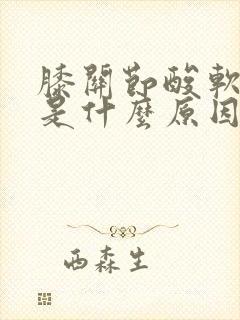 膝關節酸軟
是什麼原因
西森生